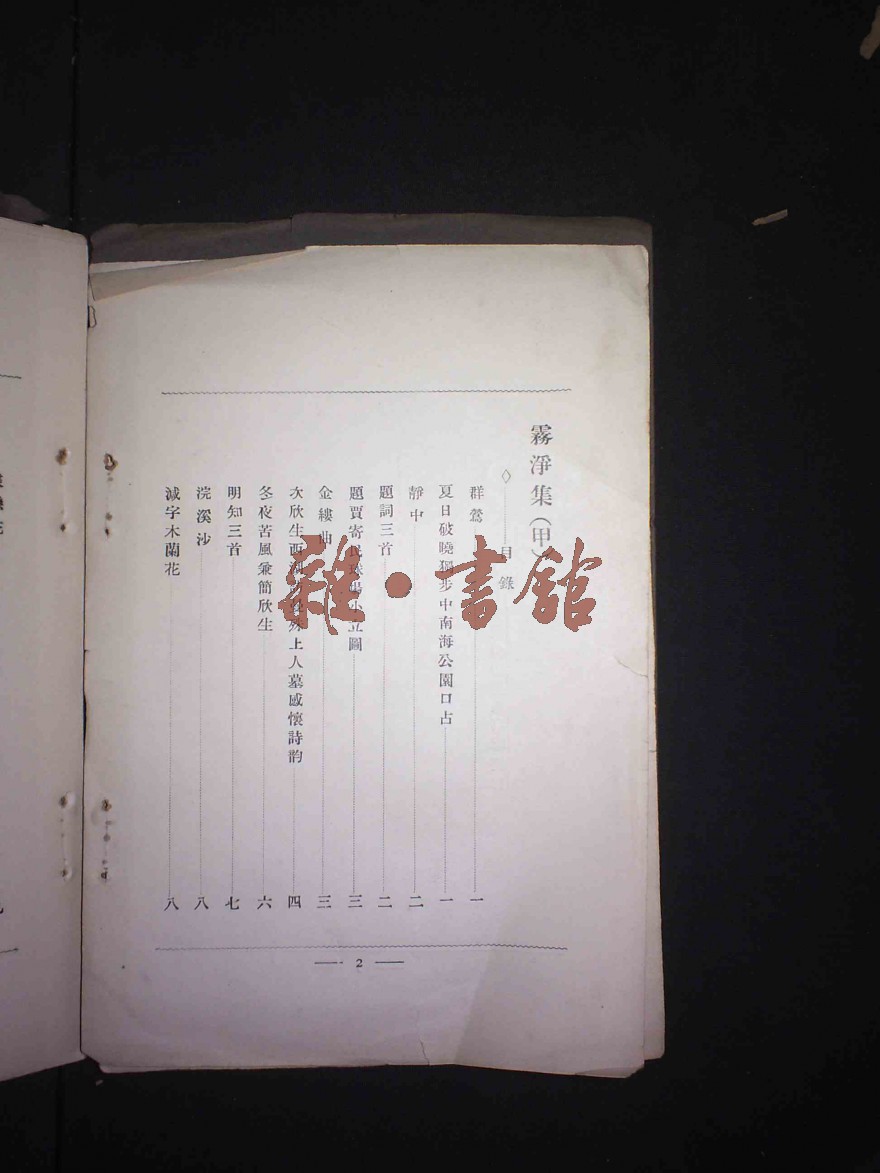 霧淨集(甲)
◇目錄
群鶯 一
夏日破曉獨步中南海公園口占 一
靜中 二
題詞三首 二
題賈寄 小立圖 三
金縷曲 三
次欣生西 上人墓感懷詩韵 四
冬夜苦風兼簡欣生 六
明知三首 七
浣溪沙 八
減字木蘭花 八
2
雜·書館